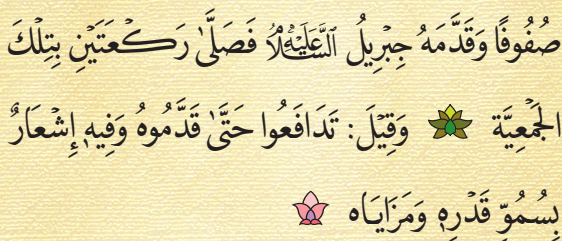 صُفُوفًا وَقَدَّمَهُ جِبْرِيلُ عَلَيْهِ السَّلَامُ فَصَلَّىٰ رَكْعَتَيْنِ بِتِلْكَ
الْجَمْعِيَّة وَقِيْلَ: تَدَافَعُوا حَتَّىٰ قَدَّمُوهُ وَفِيهِ إِشْعَارٌ
بِسُمُوِّ قَدْرِهِ وَمَزَايَاه